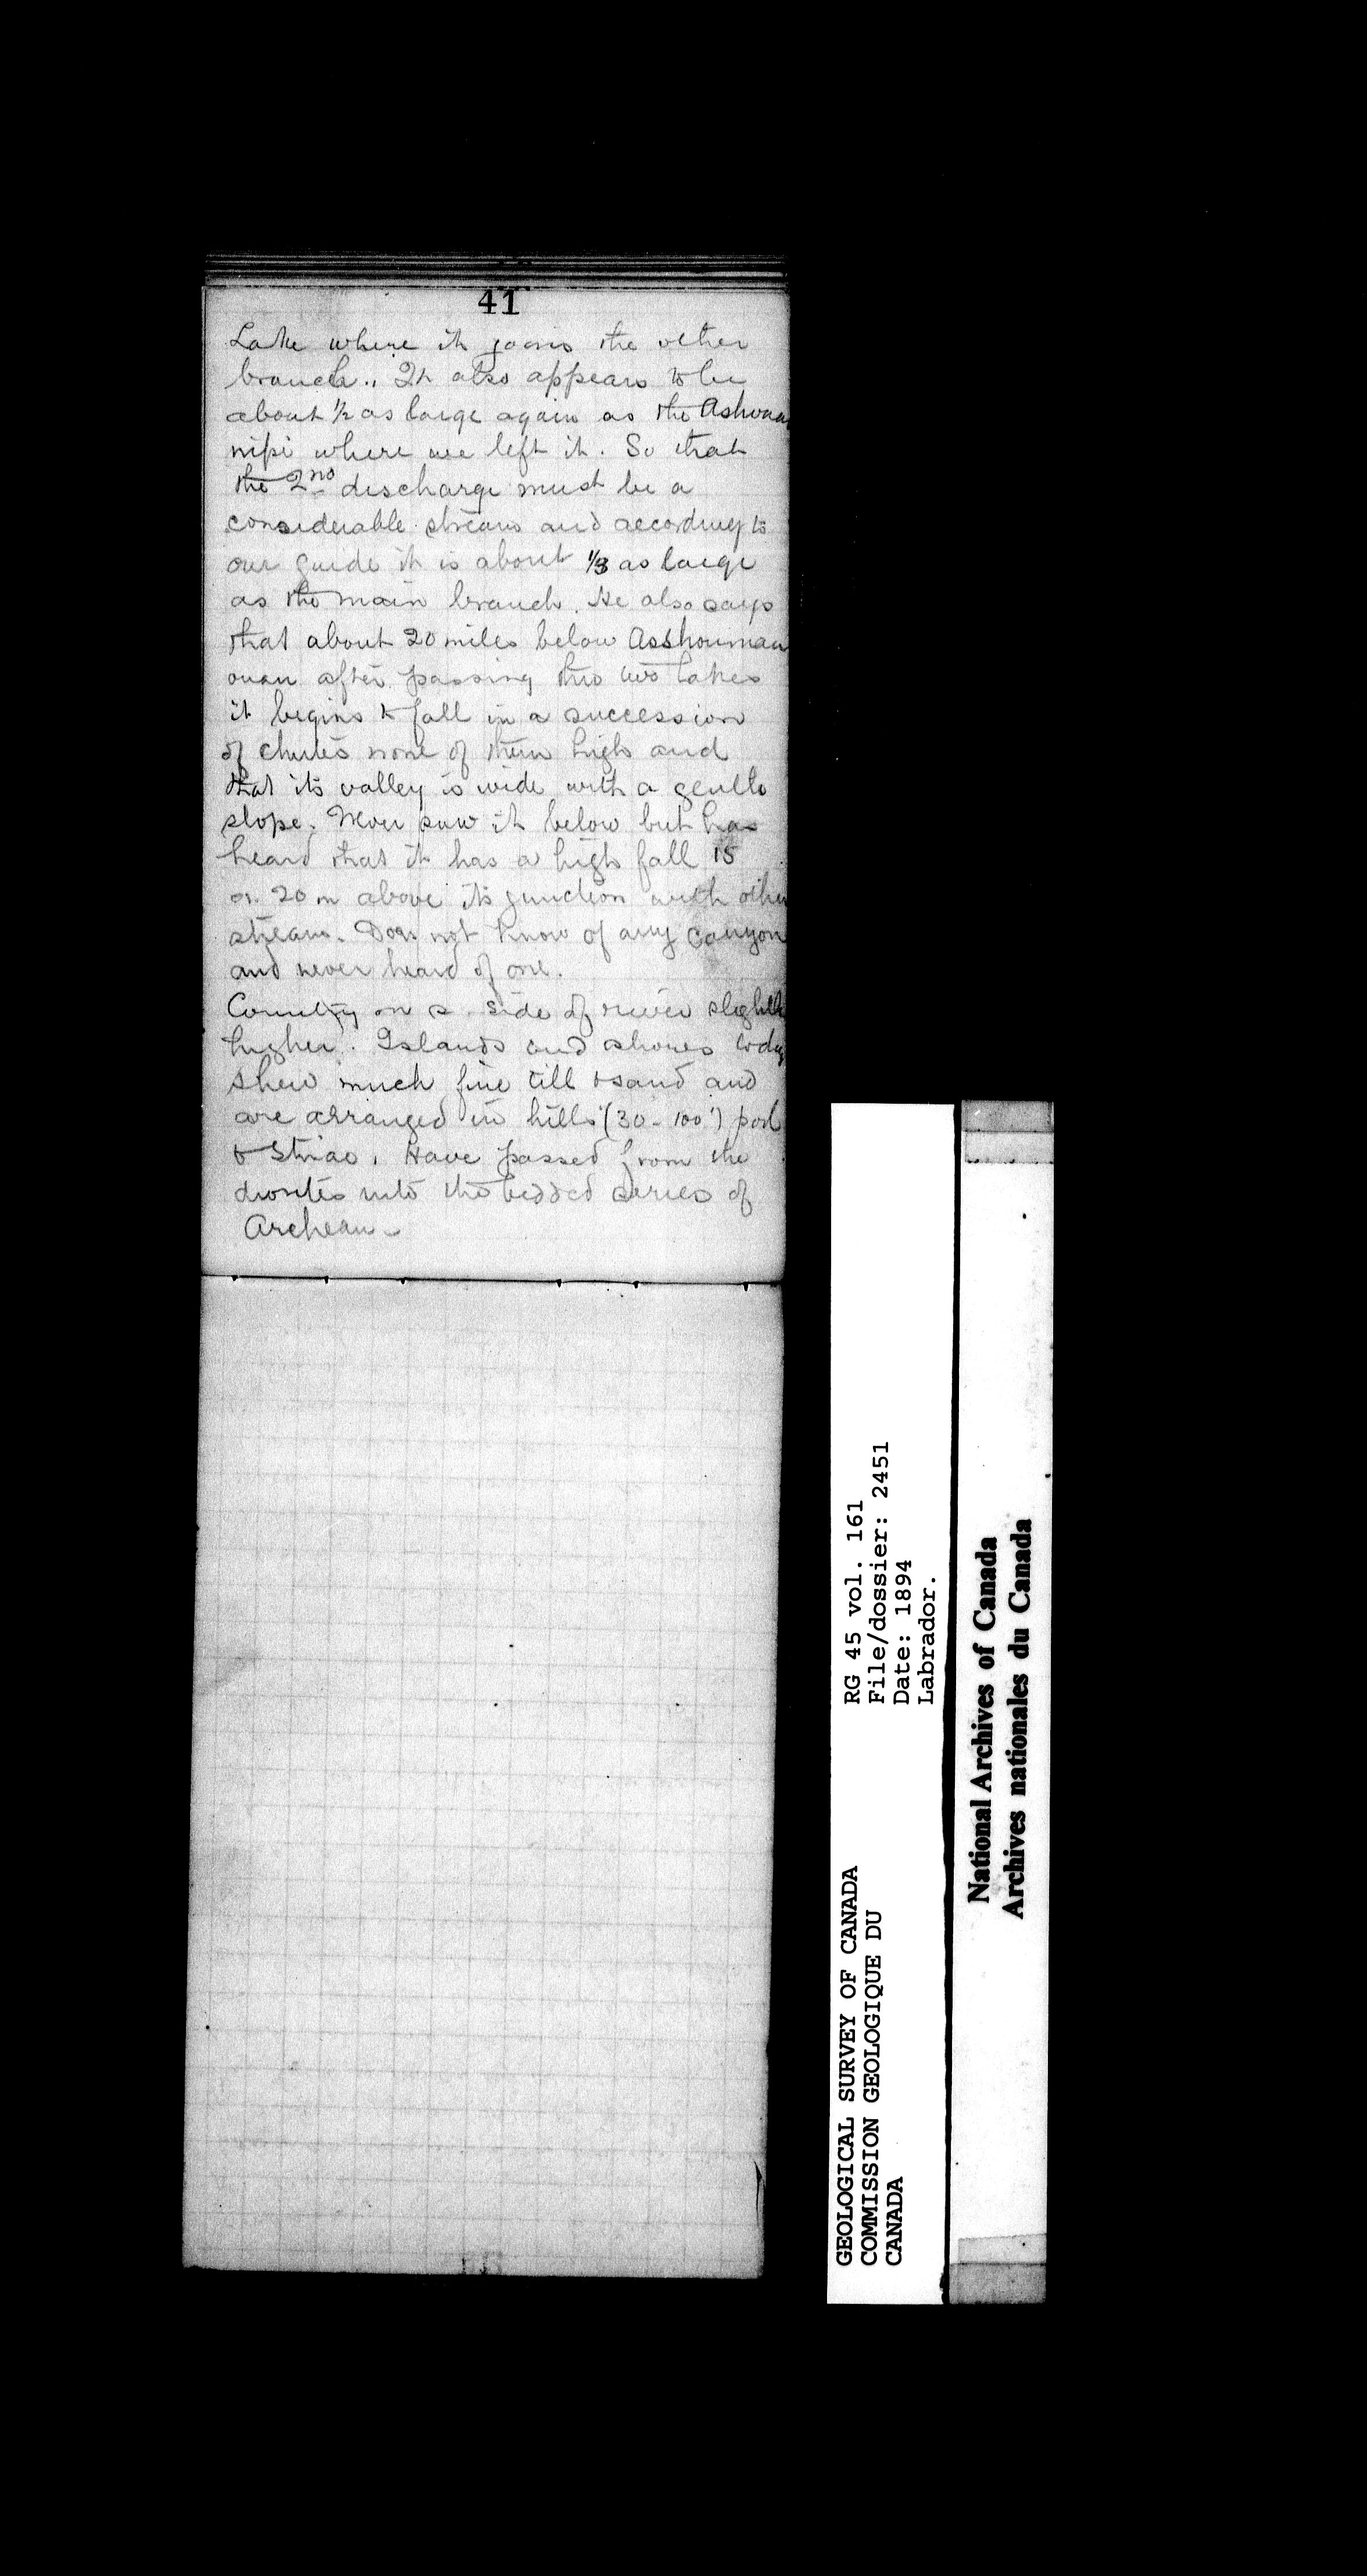 41
Lake where it joins the other
branch. It also appears to be
about ½ as large again as the Ashwa
nipi where we left it. So that
the 2nd discharge must be a
considerable stream and according to
our guide it is about ⅓ as large
as the main branch. He also says
that about 20 miles below Asshouman
ouan after passing thro two lakes
it begins to fall in a succession
of chutes none of them high and
that its valley is wide with a gentle
slope. Never saw it below but has
heard that it has a high fall 15
or 20 m above its junction with other
stream. Does not know of any canyon
and never heard of one.
Country on S. side of river slightly
higher. Islands and shores today
shew much fine till & sand and
are arranged in hills (30'-100')
to Striae. Have passed from the
diorites into the bedded series of
Archean -
RG 45 vol. 161
File/dossier: 2451
Date: 1894
Labrador.
GEOLOGICAL SURVEY OF CANADA
COMMISSION GEOLOGIQUE DU
CANADA
National Archives of Canada
Archives nationales du Canada